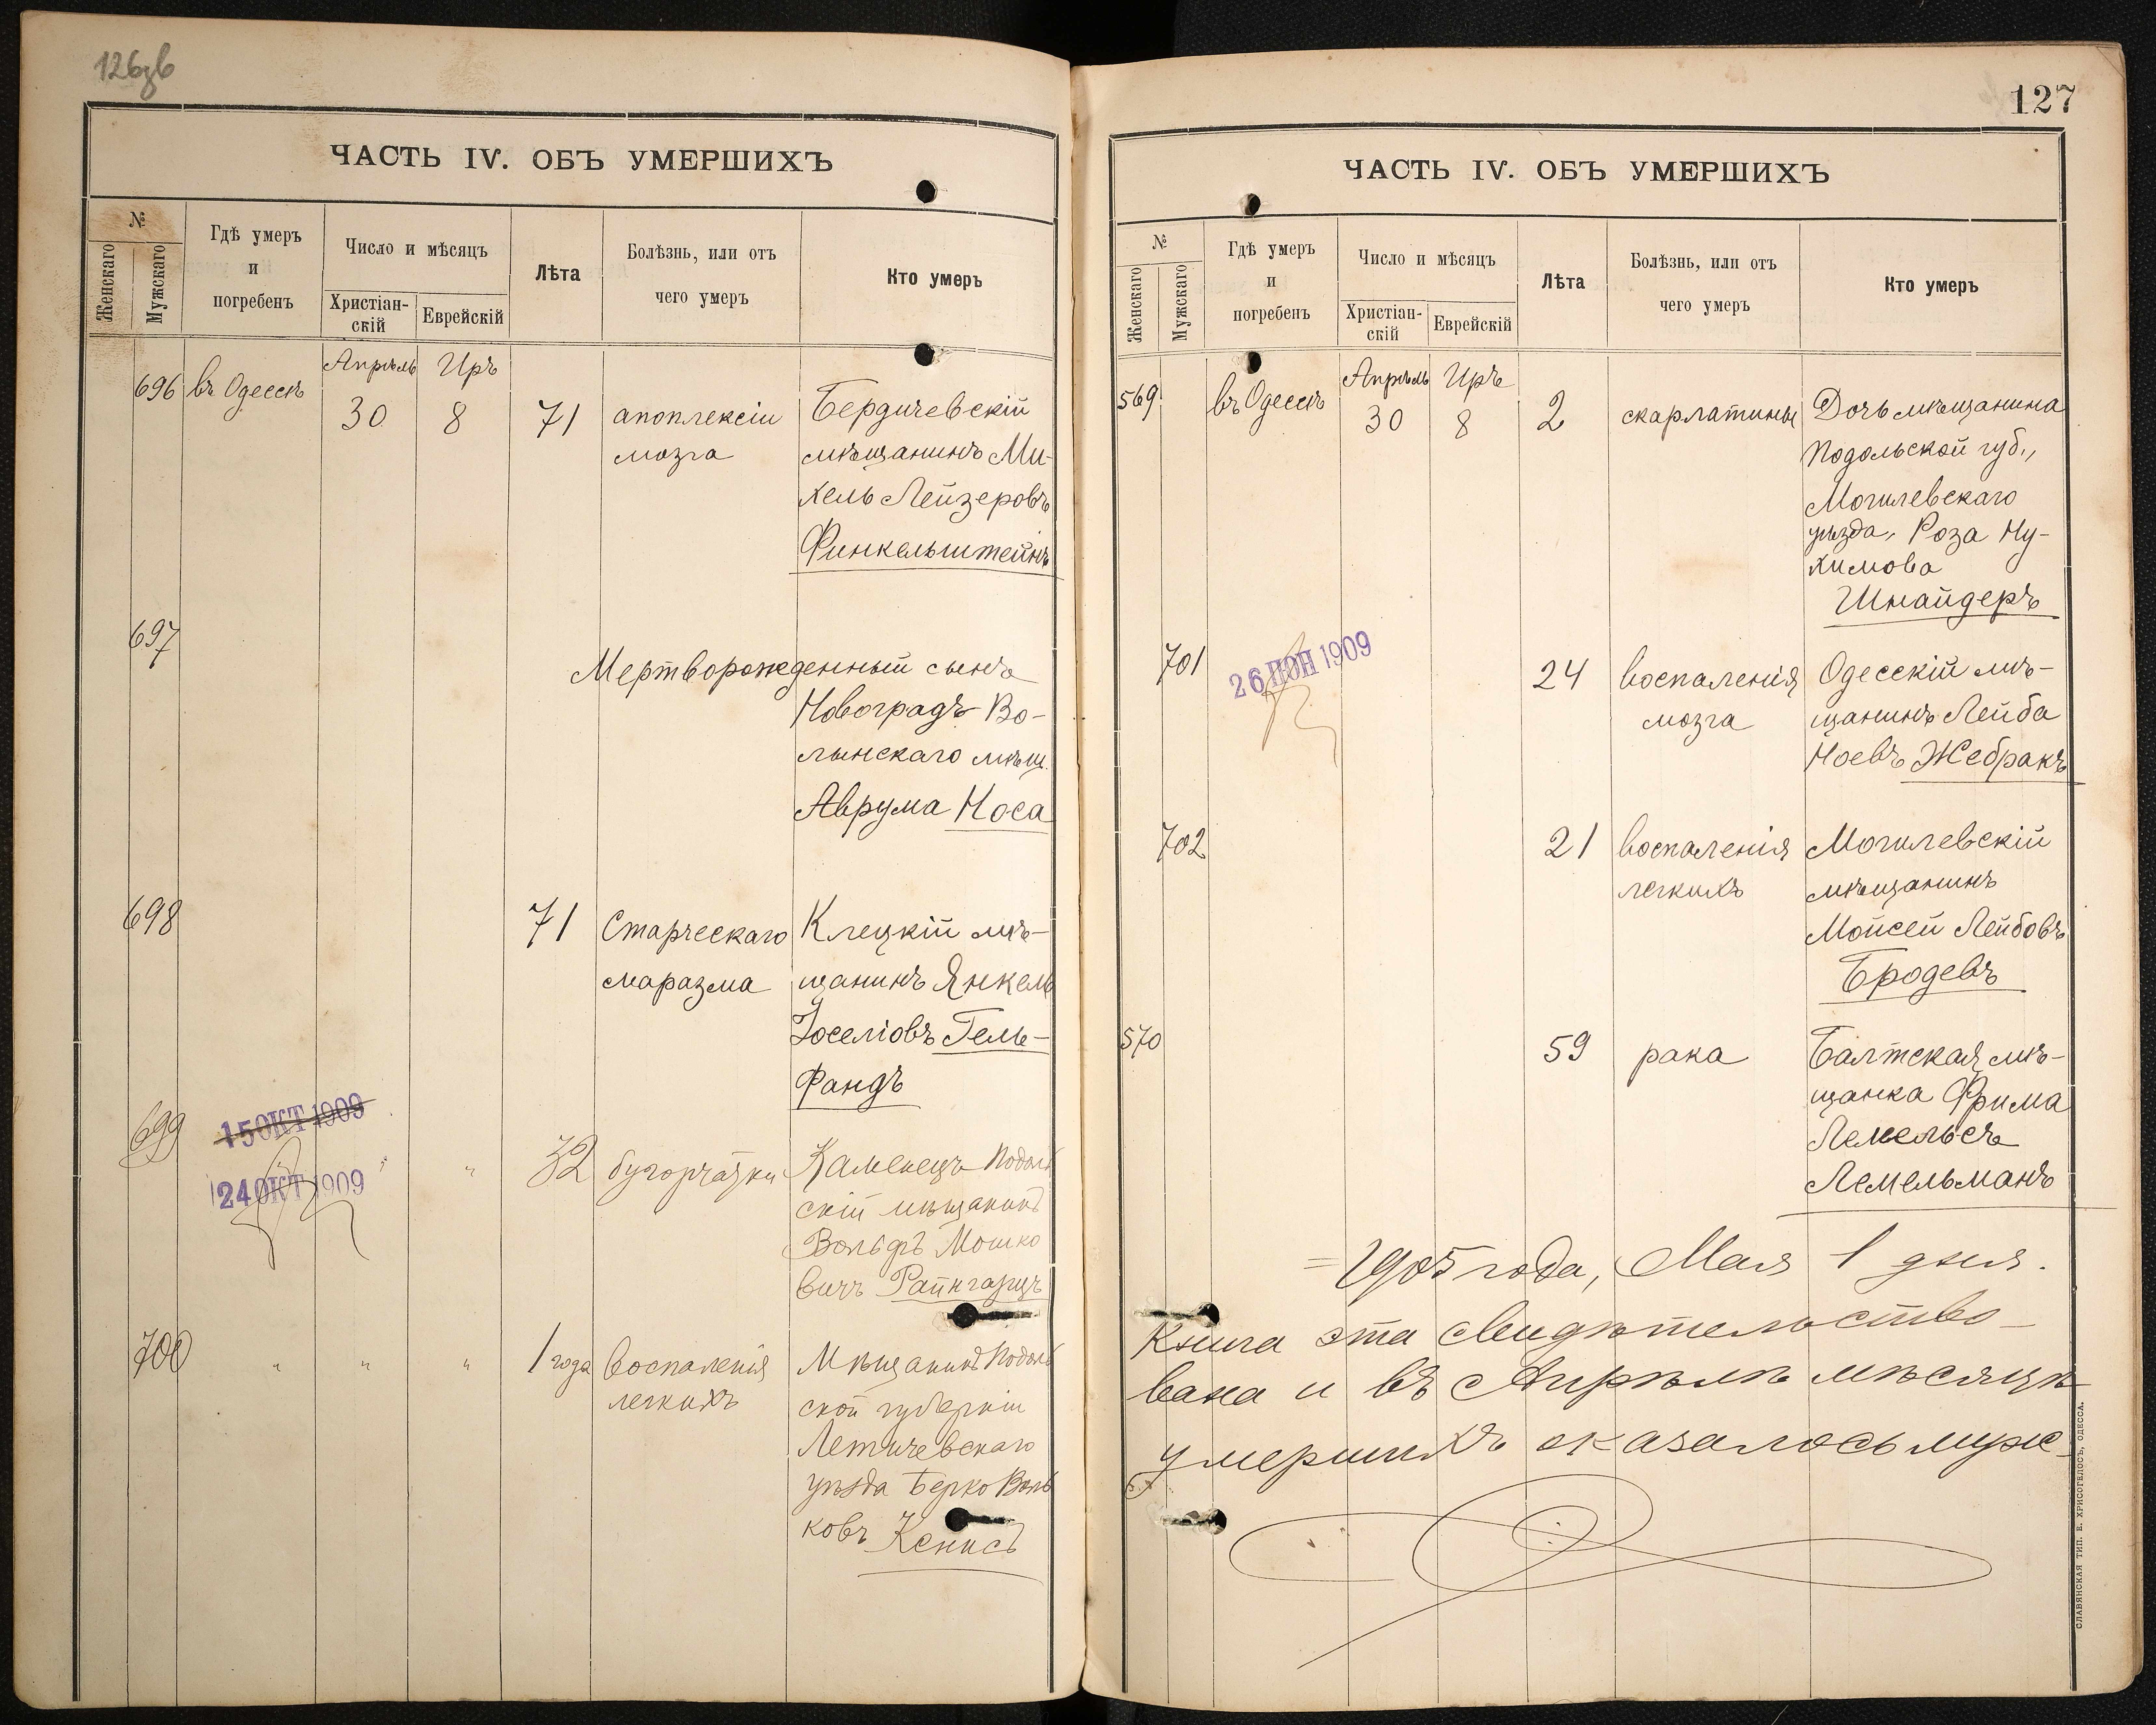 126
ЧАСТЬ IV. ОБЪ УМЕРШИХЪ
№
Женскаго
Мужскаго
Гдѣ умеръ
и
погребенъ
Число и мѣсяцъ
Христіан-
скій
Еврейскій
Лѣта
Болѣзнь, или отъ
чего умеръ
Кто умеръ
696 въ Одессѣ
Апрѣль Иръ
30 8 71
апоплексіи
мозга
Бердичевскій
мѣщанинъ Ми-
хель Лейзеровъ
Финкельштейнъ
697
Мертворожденный сынъ
Новоградъ-Во-
лынскаго мѣщ.
Аврума Носа
698 71
Старческаго
маразма
Клецкій мѣ-
щанинъ Янкель
Іоселіовъ Гель-
Фандъ
699
15 ОКТ 1909
24 ОКТ 1909
" " 32 бугорчатки
Каменецъ-Подоль
скій мѣщанинъ
Вольфъ Мошко
вичъ Райнгарцъ
700 " " " 1 года
воспаленія
легкихъ
Мѣщанинъ Подоль
ской губерніи
Летичевскаго
уѣзда Берко Воль
ковъ Кенисъ
127
ЧАСТЬ IV. ОБЪ УМЕРШИХЪ
№
Женскаго
Мужскаго
Гдѣ умеръ
и
погребенъ
Число и мѣсяцъ
Христіан-
скій
Еврейскій
Лѣта
Болѣзнь, или отъ
чего умеръ
Кто умеръ
569 въ Одессѣ
Апрѣль Иръ
30 8 2
скарлатины
Дочь мѣщанина
Подольской губ.,
Могилевскаго
уѣзда, Роза Ну-
химова
Шнайдеръ
701
26 ІЮН 1909
24
воспаленія
мозга
Одесскій мѣ-
щанинъ Лейба
Ноевъ Жебракъ
702 21
воспаленія
легкихъ
Могилевскій
мѣщанинъ
Мойсей Лейбовъ
Бродевъ
570 59 рака
Балтская мѣ-
щанка Фрима
Лемельсъ
Лемельманъ
= 1905 года, Мая 1 дня.
Книга эта свидѣтельство-
вана и въ Апрѣлѣ мѣсяцѣ
умершихъ оказалось муж-
СЛАВЯНСКАЯ ТИП. Е. ХРИСОГЕЛОСЪ, ОДЕССА.